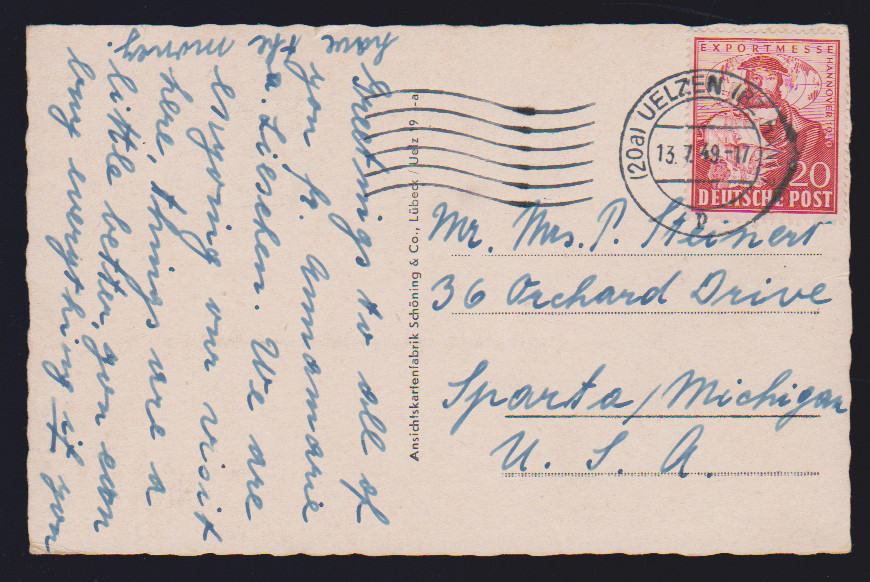 Greetings to all of
you fr. Annamarie
a. Lieschen. We are
enjoying our visit
here, things are a
little better, you can
buy everything if you
have the money.
Ansichtskartenfabrik Schöning & Co., Lübeck / Uelz 19 -a
EXPORTMESSE HANNOVER 1949
20
DEUTSCHE POST
(20a) UELZEN
13.7.49.-17
b
Mr. Mrs. P. Steinert
36 Orchard Drive
Sparta, Michigan
U. S. A.